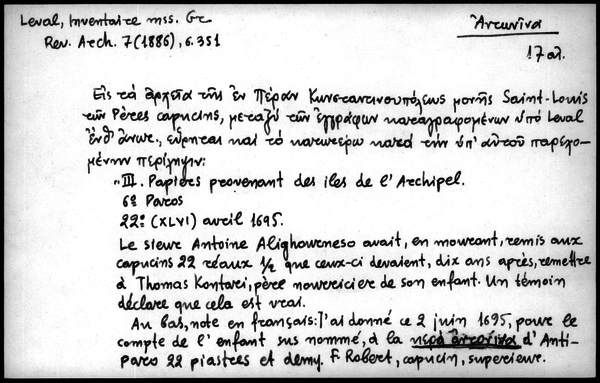 Leval, Inventaire mss. Gr
Ἀντωνῖνα
Rev. Arch. 7 (1886), σ. 351
17 αἰ.
Εἰς τὰ ἀρχεῖα τῆς ἐν Πέραν Κωνσταντινουπόλεως μονῆς Saint-Louis
τῶν Pères capucins, μεταξὺ τῶν ἐγγράφων καταγραφομένων ὑπὸ Leval
ἔνθ' ἄνωτ., εὕρηται καὶ τὸ κατωτέρω κατὰ τὴν ὑπ' αὐτοῦ παρεχο-
μένην περίληψιν:
"III. Papiers provenant des iles de l'Archipel.
6º Paros
22º (XLVI) avril 1695.
Le sieur Antoine Alighoureneso avait, en mourant, remis aux
capucins 22 réaux 1/2 que ceux-ci devaient, dix ans après, remettre
à Thomas Kontari, père nourricier de son enfant. Un témoin
déclare que cela est vrai.
Au bas, note en français: J'ai donné ce 2 juin 1695, pour le
compte de l'enfant sus nommé, à la κερὰ ἀντονίνα d'Anti-
paro 22 piastres et demy. F. Robert, capucin, supérieur.